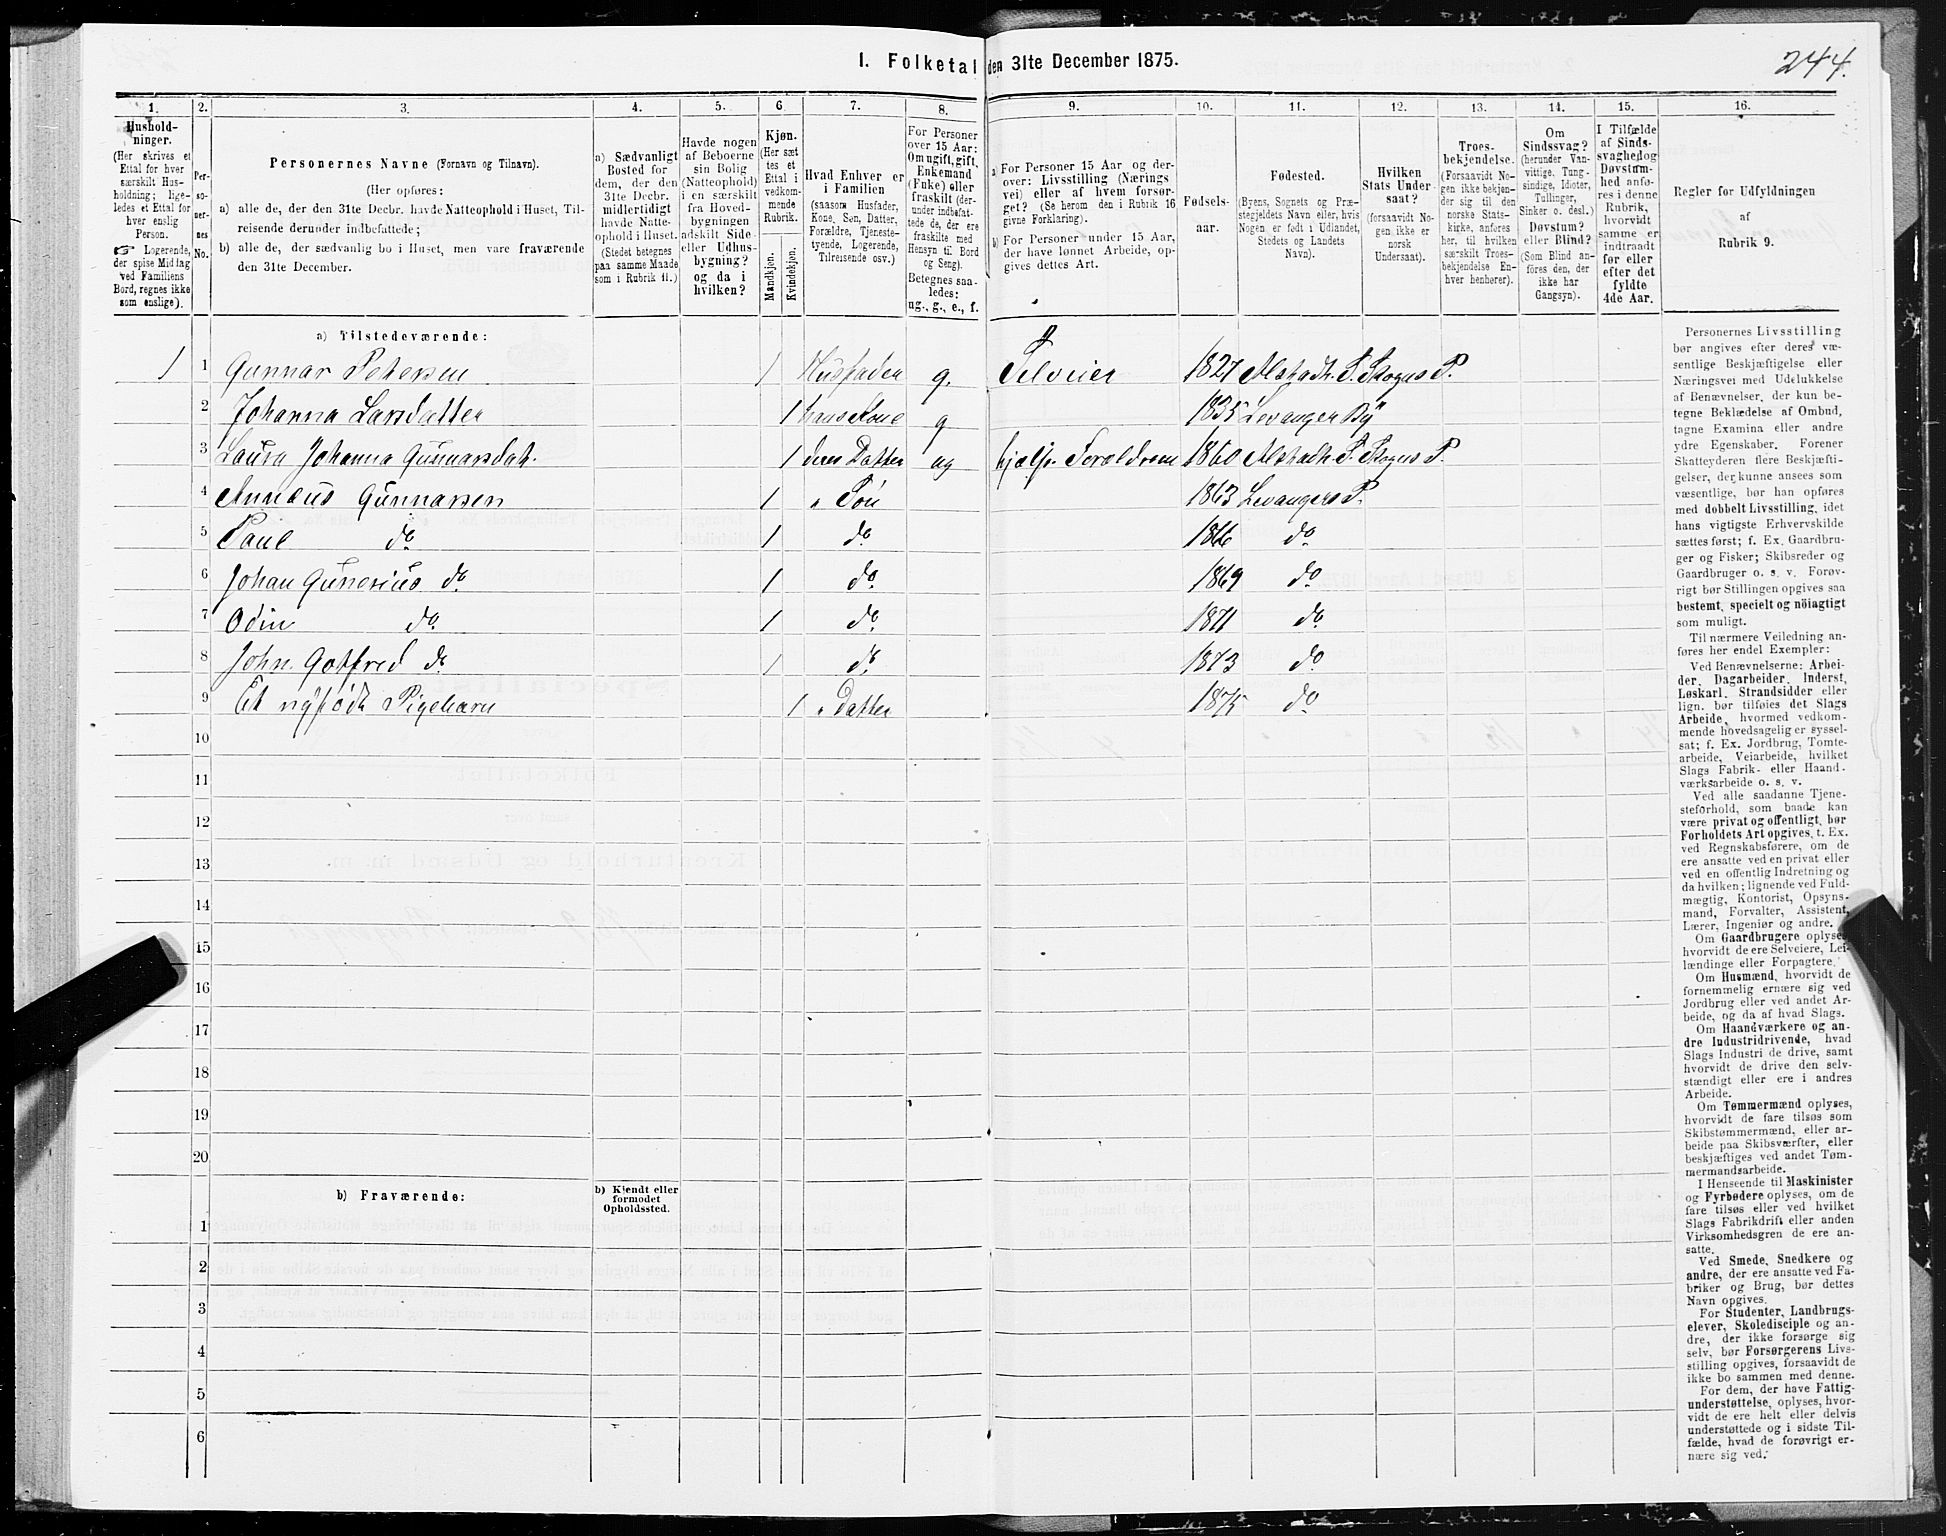 244.
I. Folketal den 31te December 1875.
1. 2. 3. 4. 5. 6. 7. 8. 9. 10. 11. 12. 13. 14. 15. 16.
Hushold-
ninger.
(Her skrives et
Ettal for hver
særskilt Hus-
holdning; lige-
ledes et Ettal for
hver enslig
Person.
☞ Logerende,
der spise Middag
ved Familiens
Bord, regnes ikke
som enslige).
Per-
so-
ner-
nes
No.
Personernes Navne (Fornavn og Tilnavn).
(Her opføres:
a) alle de, der den 31te Decbr. havde Natteophold i Huset, Til-
reisende derunder indbefattede;
b) alle de, der sædvanlig bo i Huset, men vare fraværende
den 31te December.
a) Sædvanligt
Bosted for
dem, der den
31te Decbr.
midlertidigt
havde Natte-
ophold i Huset.
(Stedet betegnes
paa samme Maade
som i Rubrik 11.)
Havde nogen
af Beboerne
sin Bolig
(Natteophold)
i en særskilt
fra Hoved-
bygningen
adskilt Side-
eller Udhus-
bygning?
og da i
hvilken?
Kjøn.
(Her sæt-
tes et
Ettal i
vedkom-
mende
Rubrik.
Mandkjøn.
Kvindekjøn.
Hvad Enhver er
i Familien
(saasom Husfader,
Kone, Søn, Datter,
Forældre, Tjeneste-
tyende, Logerende,
Tilreisende osv.)
For Personer
over 15 Aar:
Om ugift, gift,
Enkemand
(Enke) eller
fraskilt (der-
under indbefat-
tede de, der ere
fraskilte med
Hensyn til Bord
og Seng).
Betegnes saa-
ledes:
ug., g., e., f.
a) For Personer 15 Aar og der-
over: Livsstilling (Nærings
vei) eller af hvem forsør-
get? (Se herom den i Rubrik 16
givne Forklaring).
b) For Personer under 15 Aar,
der have lønnet Arbeide, op-
gives dettes Art.
Fødsels-
aar.
Fødested.
(Byens, Sognets og Præ-
stegjeldets Navn eller, hvis
Nogen er født i Udlandet,
Stedets og Landets
Navn).
Hvilken
Stats Under-
saat?
(forsaavidt No-
gen ikke er
norsk
Undersaat).
Troes-
bekjendelse.
(Forsaavidt No-
gen ikke bekjen-
der sig til den
norske Stats-
kirke, anføres
her, til hvilken
særskilt Troes-
bekjendelse En-
hver henhører).
Om
Sindssvag?
(herunder Van-
vittige, Tung-
sindige, Idioter,
Tullinger,
Sinker o. desl.)
Døvstum?
eller Blind?
(Som Blind an-
føres den, der
ikke har
Gangsyn).
I Tilfælde
af Sinds-
svaghed og
Døvstum-
hed anfø-
res i denne
Rubrik,
hvorvidt
samme er
indtraadt
før eller
efter det
fyldte
4de Aar.
Regler for Udfyldningen
af
Rubrik 9.
a) Tilstedeværende:
1 1 Gunnar Petersen 1 Husfader g. Selveier 1827 Alstadh. S. Skogns P.
2 Johanna Larsdatter 1 hans Kone g 1835 Levanger By
3 Laura Johanna Gunnarsdat. 1 deres Datter ug hjælp. Forældrene 1860 Alstadh. S. Skogns P.
4 Annæus Gunnarsen 1 " Søn 1863 Levangers P.
5 Paul do 1 do. 1866 do
6 Johan Gunerius do 1 do. 1869 do
7 Odin do. 1 do. 1871 do
8 John Gotfred do 1 do 1873 do
9 Et nyfødt Pigebarn 1 " Datter 1875 do
10
11
12
13
14
15
16
17
18
19
20
b) Fraværende: b) Kjendt eller
formodet
Opholdssted.
1
2
3
4
5
6
Personernes Livsstilling
bør angives efter deres væ-
sentlige Beskjæftigelse eller
Næringsvei med Udelukkelse
af Benævnelser, der kun be-
tegne Beklædelse af Ombud,
tagne Examina eller andre
ydre Egenskaber. Forener
Skatteyderen flere Beskjæfti-
gelser, der kunne ansees som
væsentlige, bør han opføres
med dobbelt Livsstilling, idet
hans vigtigste Erhvervskilde
sættes først; f. Ex. Gaardbru-
ger og Fisker; Skibsreder og
Gaardbruger o. s. v. Forøv-
rigt bør Stillingen opgives saa
bestemt, specielt og nöiagtigt
som muligt.
Til nærmere Veiledning an-
føres her endel Exempler:
Ved Benævnelserne: Arbei-
der, Dagarbeider, Inderst,
Løskarl, Strandsidder eller
lign. bør tilføies det Slags
Arbeide, hvormed vedkom-
mende hovedsagelig er syssel-
sat; f. Ex. Jordbrug, Tomte-
arbeide, Veiarbeide, hvilket
Slags Fabrik- eller Haand-
værksarbeide o. s. v.
Ved alle saadanne Tjene-
steforhold, som baade kan
være privat og offentligt, bør
Forholdets Art opgives, t. Ex.
ved Regnskabsførere, om de
ere ansatte ved en privat eller
ved en offentlig Indretning og
da hvilken; lignende ved Fuld-
mægtig, Kontorist, Opsyns-
mand, Forvalter, Assistent,
Lærer, Ingeniør og andre.
Om Gaardbrugere oplyses,
hvorvidt de ere Selveiere, Lei-
lændinge eller Forpagtere.
Om Husmænd, hvorvidt de
fornemmelig ernære sig ved
Jordbrug eller ved andet Ar-
beide, og da af hvad Slags.
Om Haandværkere og an-
dre Industridrivende, hvad
Slags Industri de drive, samt
hvorvidt de drive den selv-
stændigt eller ere i andres
Arbeide.
Om Tømmermænd oplyses,
hvorvidt de fare tilsøs som
Skibstømmermænd, eller ar-
beide paa Skibsværfter, eller
beskjæftiges ved andet Tøm-
mermandsarbeide.
I Henseende til Maskinister
og Fyrbødere oplyses, om de
fare tilsøs eller ved hvilket
Slags Fabrikdrift eller anden
Virksomhedsgren de ere an-
satte.
Ved Smede, Snedkere og
andre, der ere ansatte ved Fa-
briker og Brug, bør dettes
Navn opgives.
For Studenter, Landbrugs-
elever, Skoledisciple og an-
dre, der ikke forsørge sig
selv, bør Forsørgerens Livs-
stilling opgives, forsaavidt de
ikke bo sammen med denne.
For dem, der have Fattig-
understøttelse, oplyses, hvor-
vidt de ere helt eller delvis
understøttede og i sidste Til-
fælde, hvad de forøvrigt er-
nære sig ved.